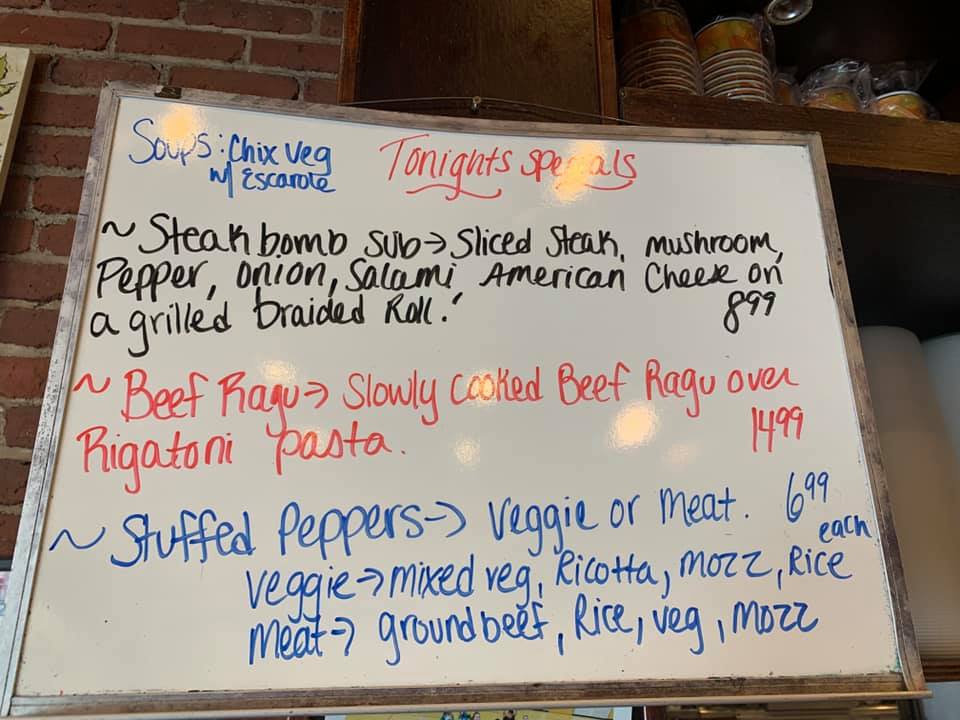 Soups: Chix Veg
w/ Escarole
Tonights specials
~ Steak bomb sub → Sliced Steak, mushroom,
Pepper, onion, Salami, American Cheese on
a grilled braided Roll! 8.99
~ Beef Ragu → Slowly cooked Beef Ragu over
Rigatoni pasta. 14.99
~ Stuffed Peppers → Veggie or Meat. 6.99
each
veggie → mixed veg, Ricotta, mozz, Rice
meat → ground beef, Rice, veg, mozz